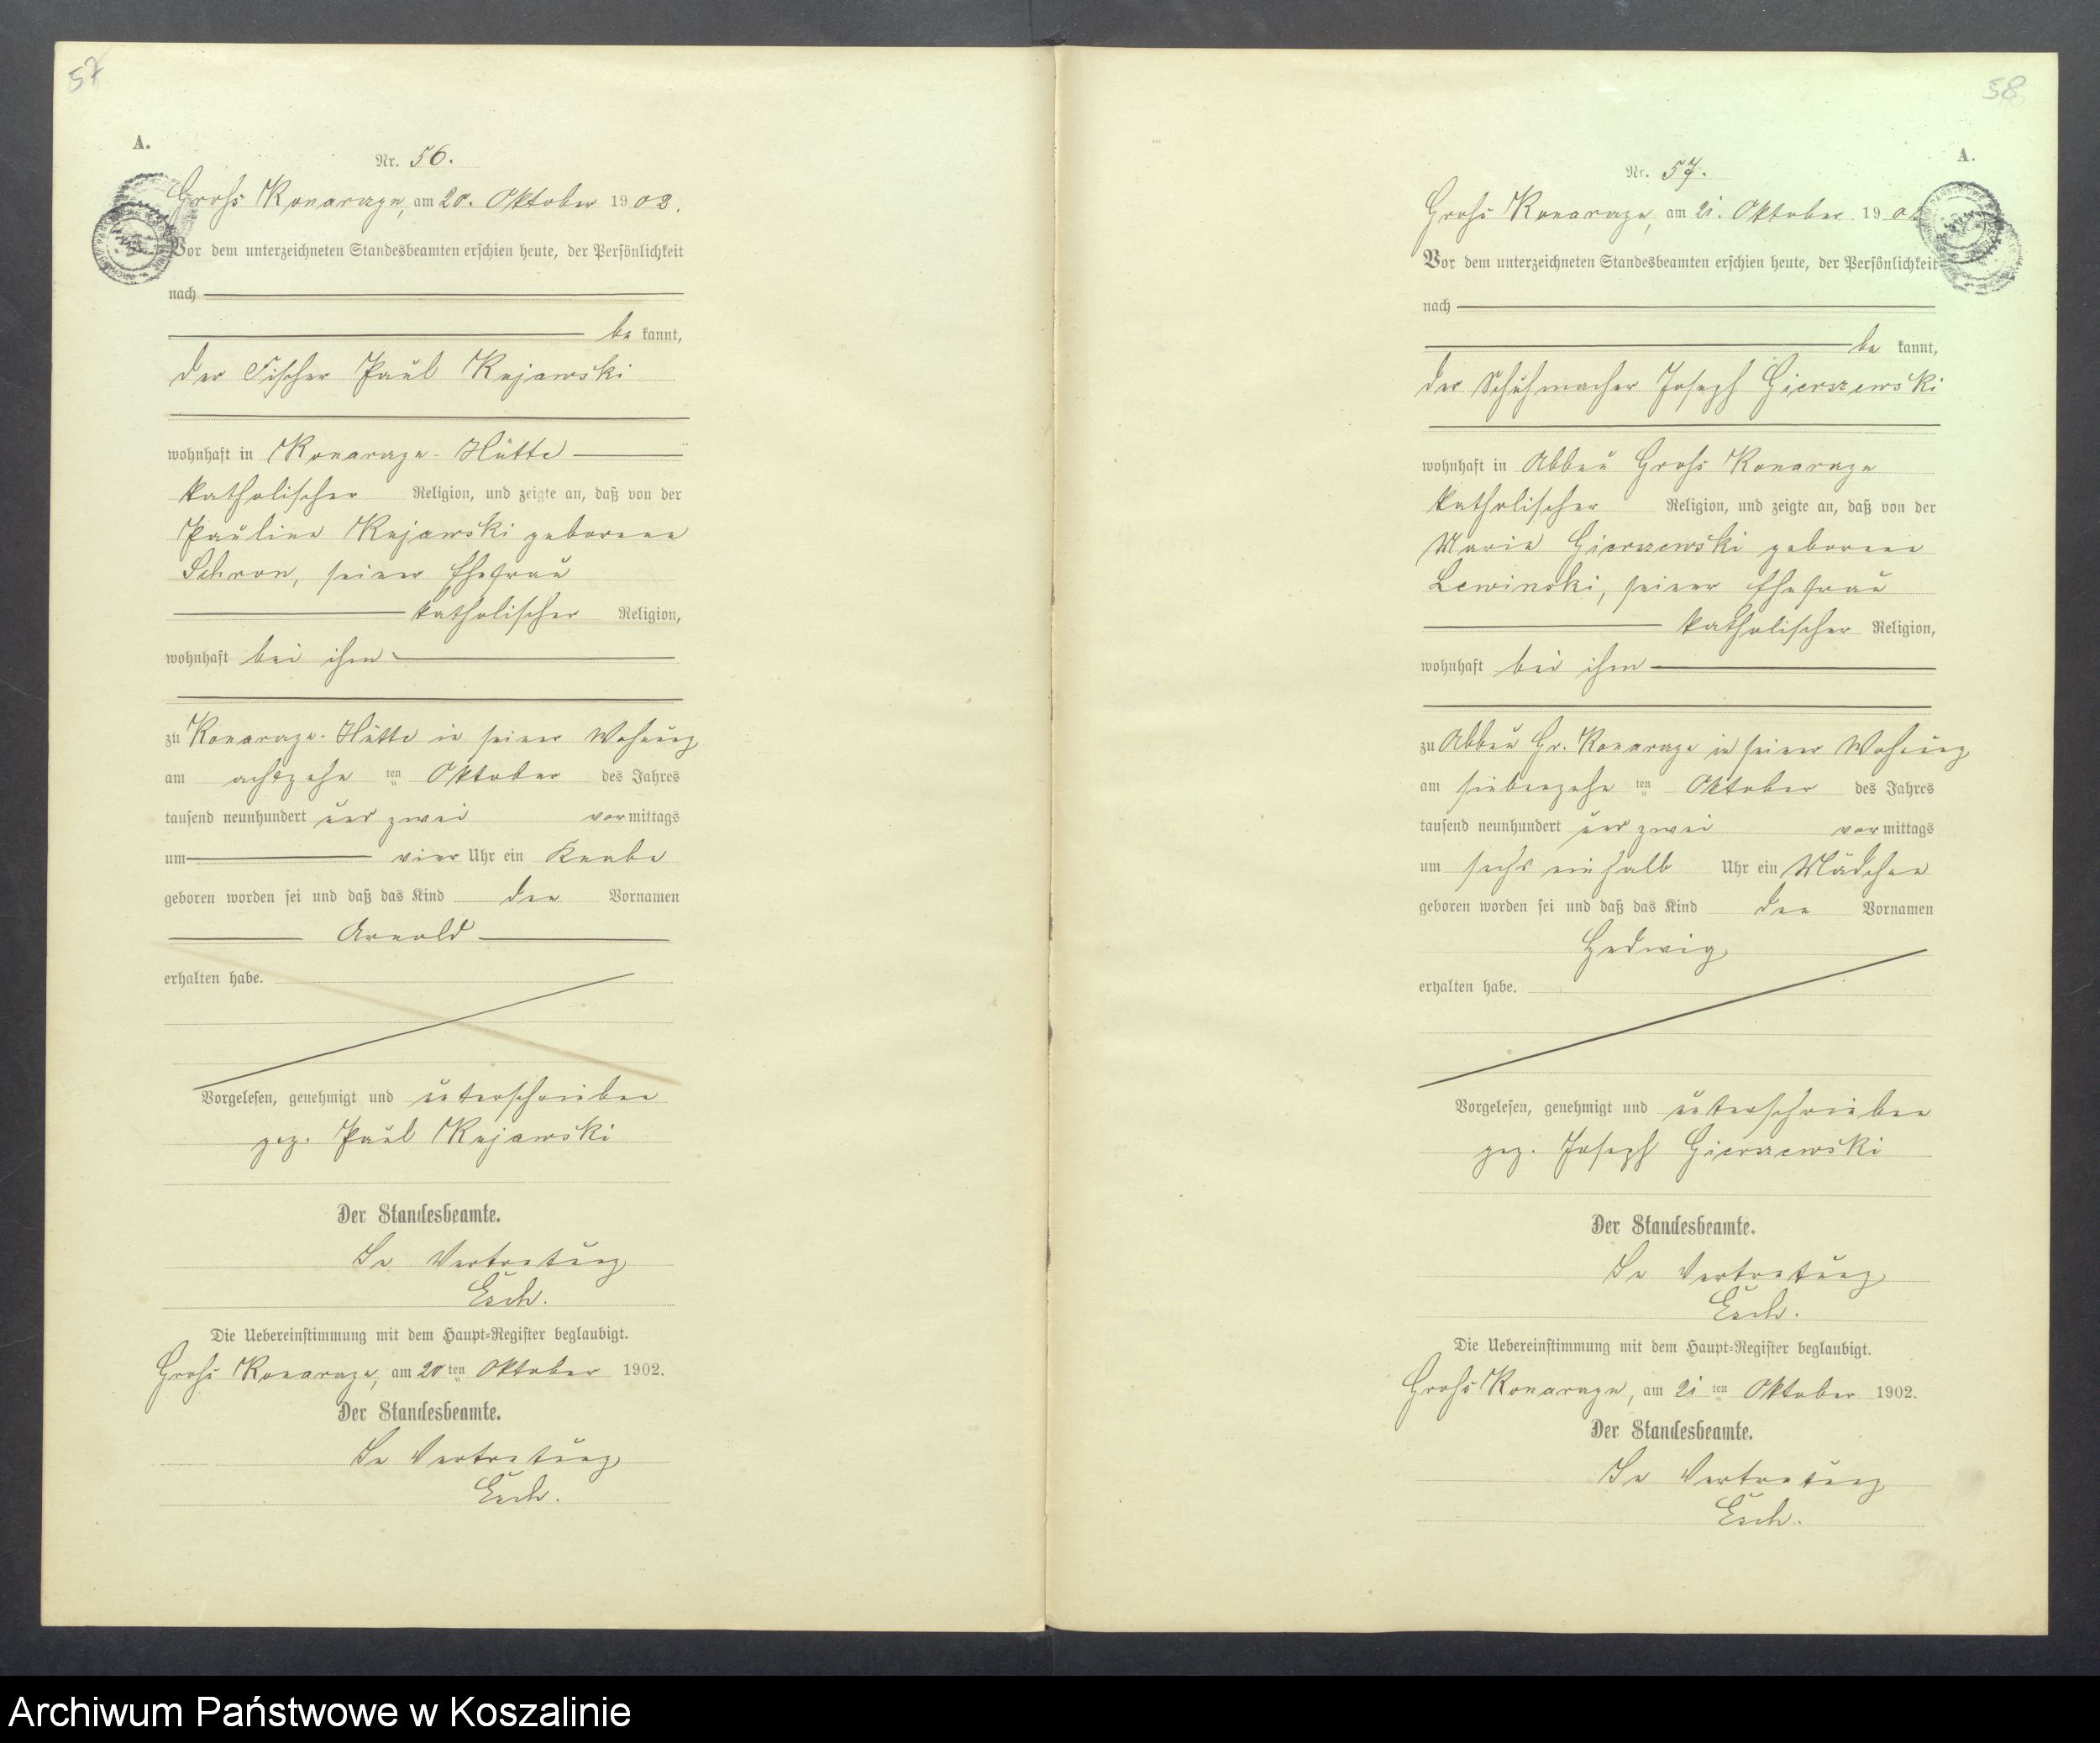 57
A.
Nr. 56.
Groß Konarczyn, am 20. Oktober 1902.
Vor dem unterzeichneten Standesbeamten erschien heute, der Persönlichkeit
nach
be kannt,
der Fischer Paul Kujawski
wohnhaft in Konarczyn-Hütte
katholischer Religion, und zeigte an, daß von der
Pauline Kujawski geborene
Schron, seiner Ehefrau
katholischer Religion,
wohnhaft bei ihm
zu Konarczyn-Hütte in seiner Wohnung
am achtzehn ten Oktober des Jahres
tausend neunhundert und zwei vor mittags
um vier Uhr ein Knabe
geboren worden sei und daß das Kind den Vornamen
Arnold
erhalten habe.
Vorgelesen, genehmigt und unterschrieben
gez. Paul Kujawski
Der Standesbeamte.
In Vertretung
Esch.
Die Uebereinstimmung mit dem Haupt-Register beglaubigt.
Groß Konarczyn, am 20 ten Oktober 1902.
Der Standesbeamte.
In Vertretung
Esch.
58
A.
Nr. 57.
Groß Konarczyn, am 21. Oktober 190
Vor dem unterzeichneten Standesbeamten erschien heute, der Persönlichkeit
nach
be kannt,
der Schuhmacher Joseph Gierszewski
wohnhaft in Abbau Groß Konarczyn
katholischer Religion, und zeigte an, daß von der
Maria Gierszewski geborene
Lewinski, seiner Ehefrau
katholischer Religion,
wohnhaft bei ihm
zu Abbau Gr. Konarczyn in seiner Wohnung
am siebenzehn ten Oktober des Jahres
tausend neunhundert und zwei vor mittags
um sechs einhalb Uhr ein Mädchen
geboren worden sei und daß das Kind den Vornamen
Hedwig
erhalten habe.
Vorgelesen, genehmigt und unterschrieben
gez. Joseph Gierszewski
Der Standesbeamte.
In Vertretung
Esch.
Die Uebereinstimmung mit dem Haupt-Register beglaubigt.
Groß Konarczyn, am 21 ten Oktober 1902.
Der Standesbeamte.
In Vertretung
Esch.
Archiwum Państwowe w Koszalinie